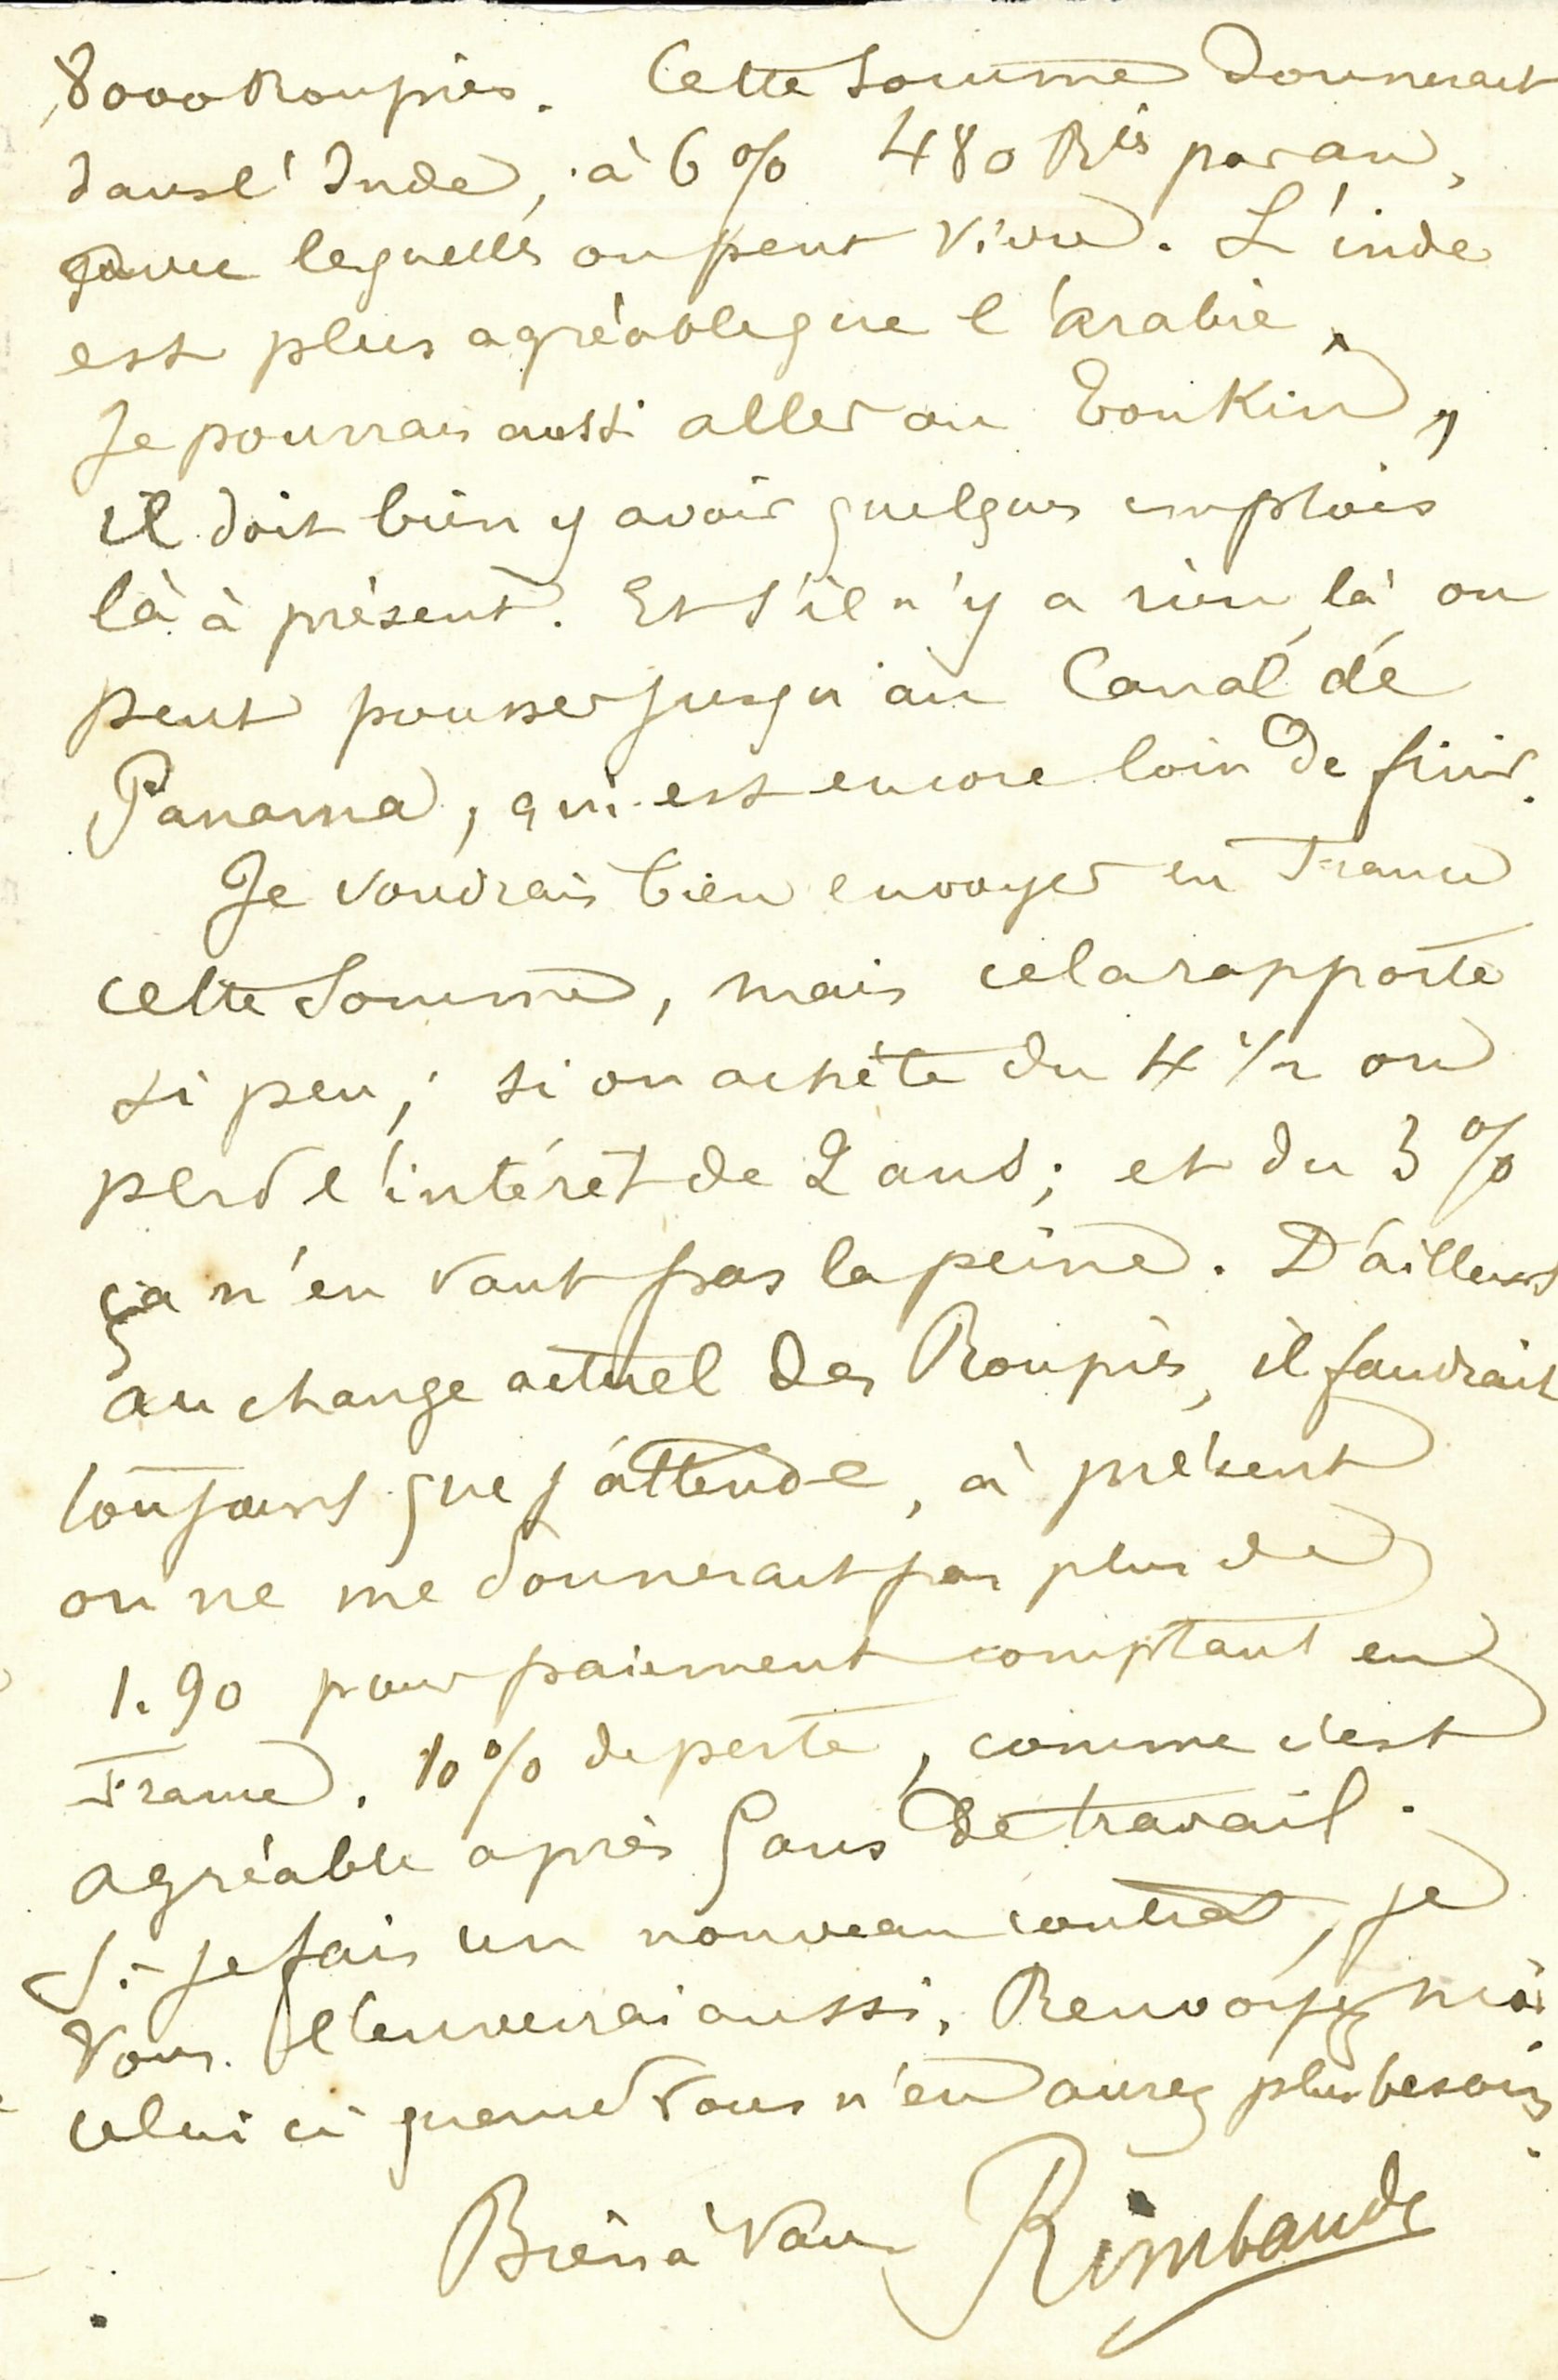 8000 Roupies. Cette somme donnerait
dans l'Inde, à 6 % 480 Ries par an,
avec lesquelles on peut vivre. L'inde
est plus agréable que l'Arabie.
Je pourrais aussi aller au Tonkin,
il doit bien y avoir quelques emplois
là à présent. Et s'il n'y a rien là on
peut pousser jusqu'au Canal de
Panama, qui est encore loin de finir.
Je voudrais bien envoyer en France
cette somme, mais cela rapporte
si peu; si on achète du 4 ½ on
perd l'intérêt de 2 ans; et du 3 %
ça n'en vaut pas la peine. D'ailleurs
au change actuel des Roupies, il faudrait
toujours que j'attende, à présent
on ne me donnerait pas plus de
1.90 pour paiement comptant en
France. 10 % de perte, comme c'est
agréable après 5 ans de travail.
Si je fais un nouveau contrat, je
vous l'enverrai aussi. Renvoyez moi
celui ci quand vous n'en aurez plus besoin.
Bien à vous Rimbaud